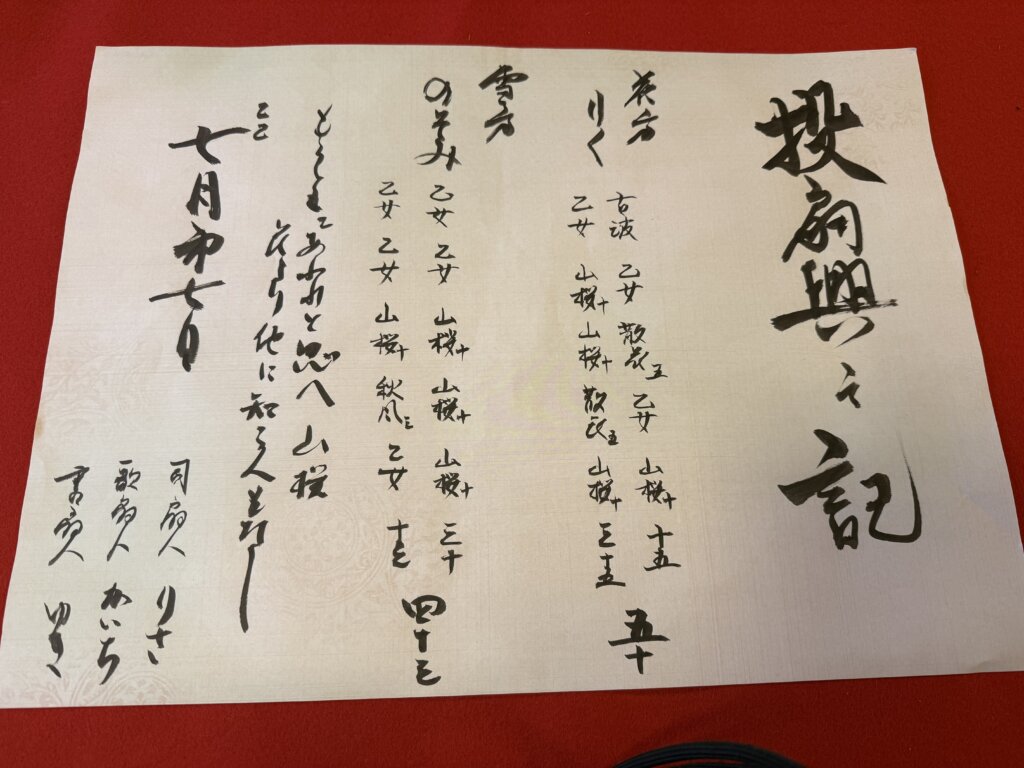 投扇興之記
花方
りく
古波 乙女 散花五 乙女 山桜十 十五
乙女 山桜十 山桜十 散花五 山桜十 三十五
五十
雪方
のぞみ
乙女 乙女 山桜十 山桜十 山桜十 三十
乙女 乙女 山桜十 秋風三 乙女 十三
四十三
もろともにあわれと思へ山桜
花より他に知る人もなし
乙巳
七月第七日
司扇人 りさ
歌扇人 かいち
書扇人 ゆき